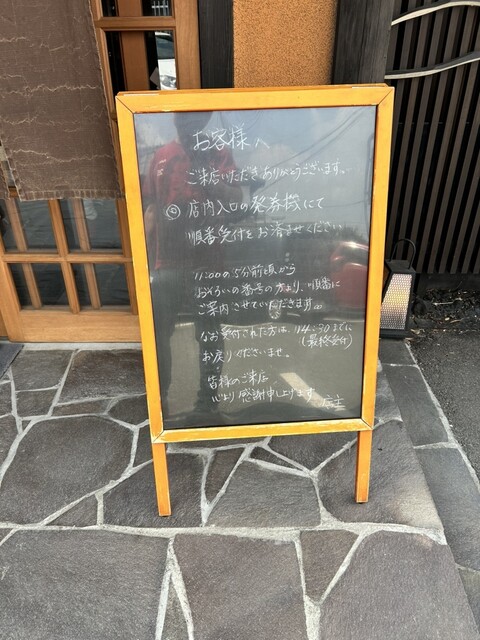 お客様へ
ご来店いただきありがとうございます。
◎ 店内入口の発券機にて
順番受付をお済ませください
11:00の5分前頃から
おそろいの番号の方より、順番に
ご案内させていただきます。
なお受付された方は、14:30までに
(最終受付)
お戻りくださいませ。
皆様のご来店
心より感謝申し上げます 店主